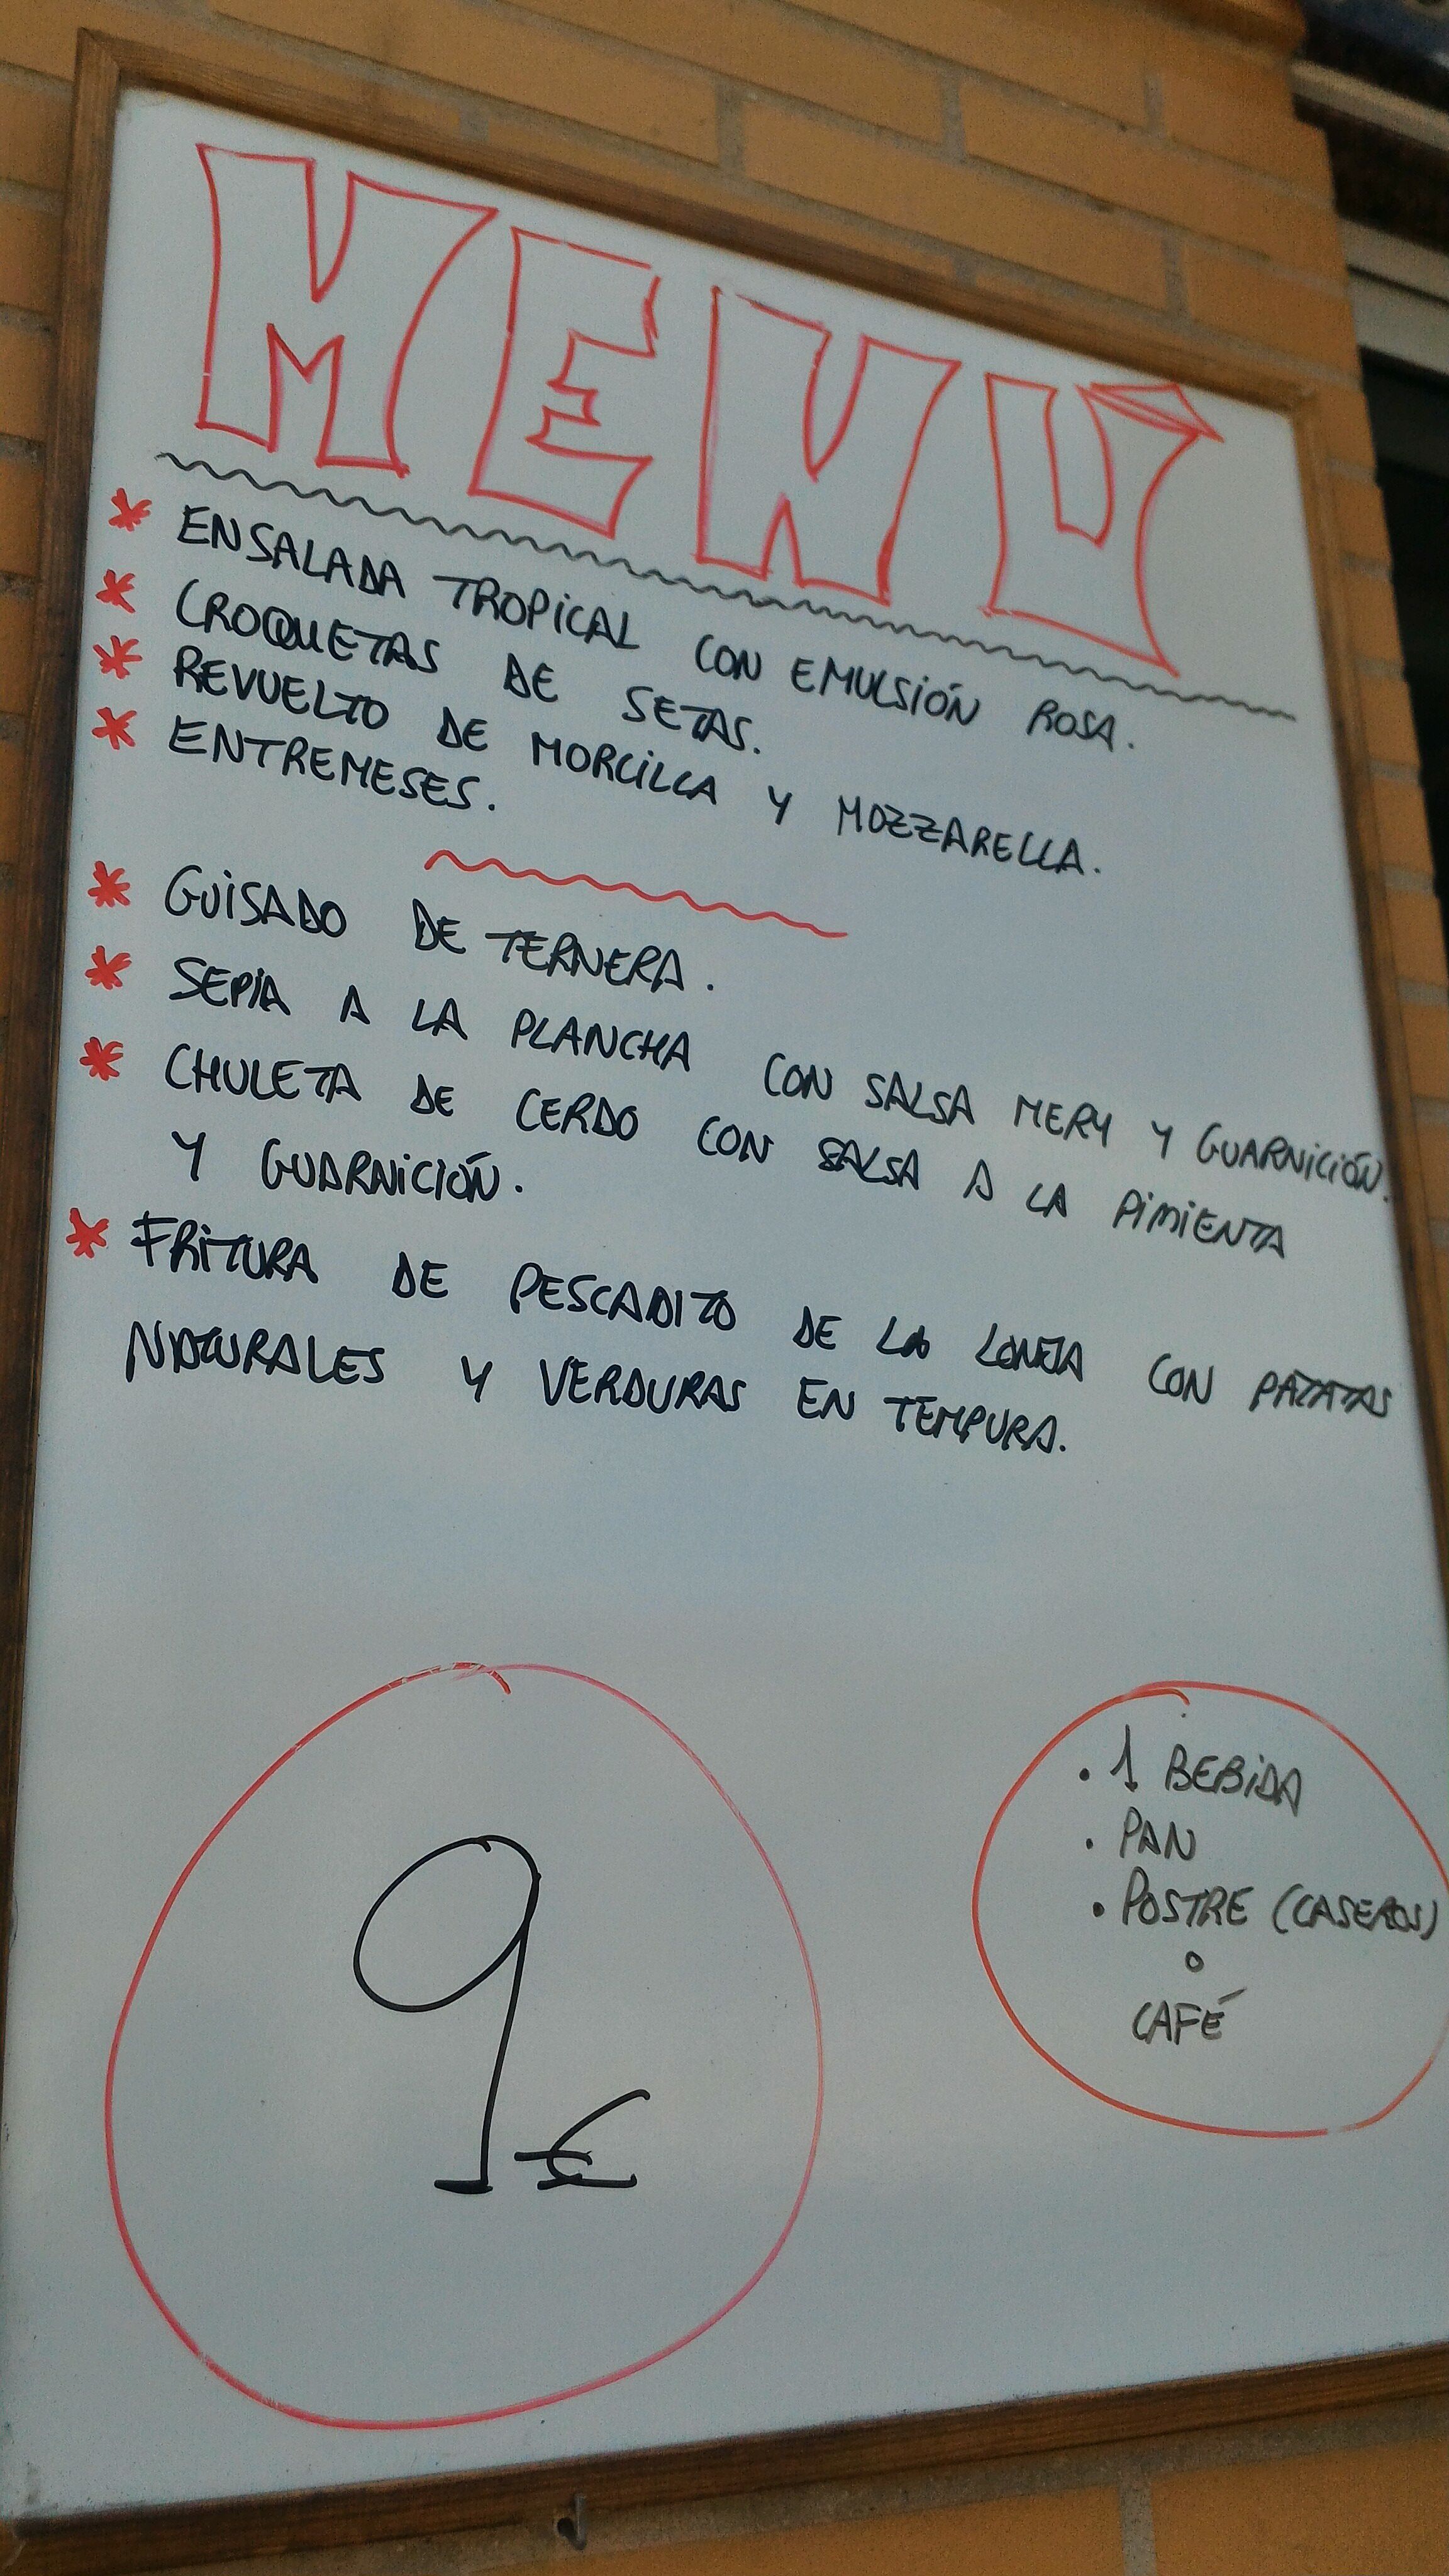 MENÚ
* ENSALADA TROPICAL CON EMULSIÓN ROSA.
* CROQUETAS DE SETAS.
* REVUELTO DE MORCILLA Y MOZZARELLA.
* ENTREMESES.
* GUISADO DE TERNERA.
* SEPIA A LA PLANCHA CON SALSA MERY Y GUARNICIÓN.
* CHULETA DE CERDO CON SALSA A LA PIMIENTA
Y GUARNICIÓN.
* FRITURA DE PESCADITO DE LA LONJA CON PATATAS
NATURALES Y VERDURAS EN TEMPURA.
9€
· 1 BEBIDA
· PAN
· POSTRE (CASEROS)
O
CAFÉ